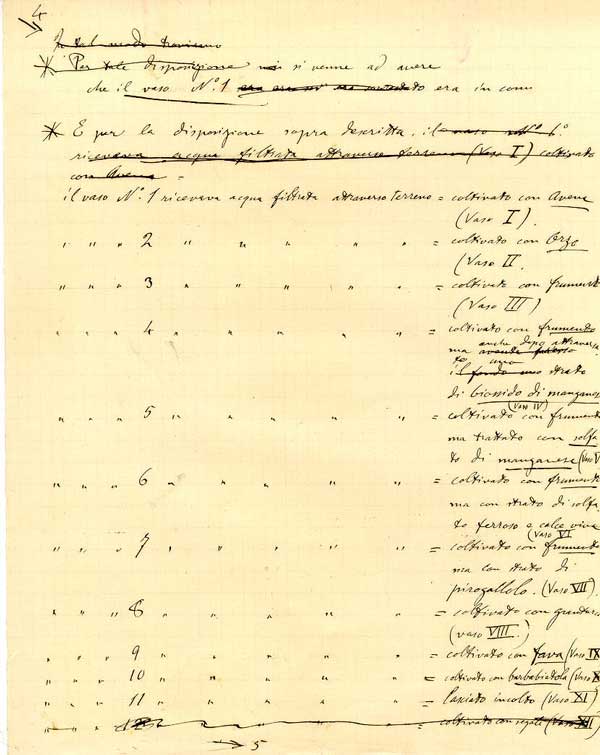 4
In tal modo
* Per tale disposizione si venne ad avere
che il vaso N.º 1 era era in com
* E per la disposizione sopra descritta. il vaso Nº 6º
riceveva acqua filtrata attraverso terreno (Vaso I) coltivato
con Avena =
il vaso Nº. 1 riceveva acqua filtrata attraverso terreno = coltivato con Avena
(Vaso I).
" " " 2 " " " " " = coltivato con Orzo
(Vaso II
" " " 3 " " " " " = coltivato con frumento
(Vaso III)
" " " 4 " " " " " = coltivato con frumento
anche dopo attraversa
ma
to uno
il fondo uno strato
di biossido di manganese
(Vaso IV)
" " " 5 " " " " " = coltivato con frumento
ma trattato con solfa
to di manganese (Vaso V
" " " 6 " " " " " = coltivato con frumento
ma con strato di solfa
to ferroso e calce viva
(Vaso VI
" " " 7 " " " " " = coltivato con frumento
ma con strato di
pirogallolo. (Vaso VII)
" " " 8 " " " " " = coltivato con
(vaso VIII.)
" " " 9 " " " " " = coltivato con fava (Vaso IX
" " " 10 " " " " " = coltivato con barbabietola (Vaso X
" " " 11 " " " " " = lasciato incolto (Vaso XI)
" " " 12 = coltivato con segale (Vaso XII)
→ 5